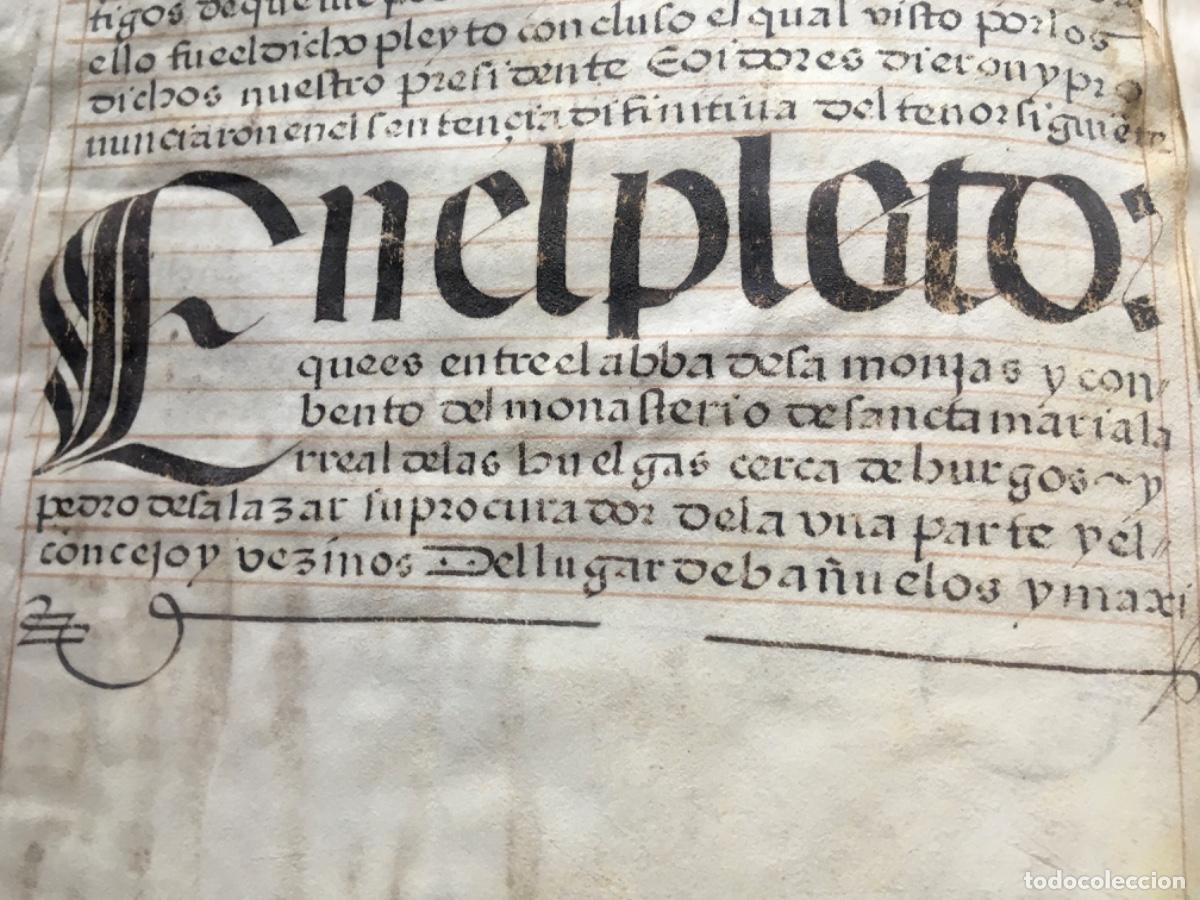 tigos de que
ello fue el dicho pleyto concluso el qual visto por los
dichos nuestro presidente E oidores dieron y pro
nunciaron en el sentençia difinitiva del tenor siguiēte
En el pleito:
que es entre el abbadesa monjas y con-
bento del monasterio de sancta maria la
rreal de las huelgas cerca de burgos y
pedro de salazar su procurador de la vna parte y el
concejo y vezinos Del lugar de bañuelos y maxi
todocoleccion